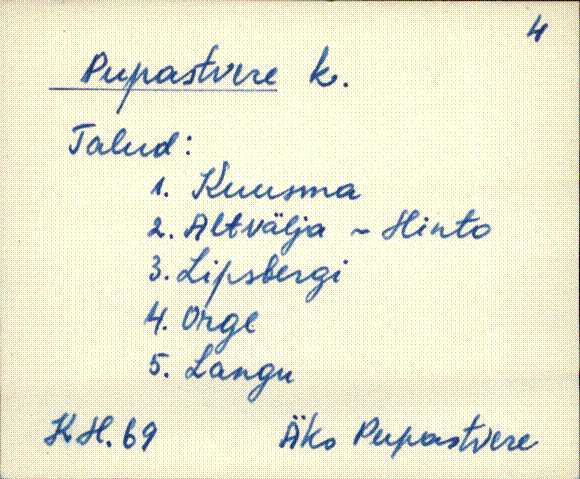 4
Pupastvere k.
Talud:
1. Kuusma
2. Altvälja ~ Hinto
3. Lipsbergi
4. Orge
5. Langu
KH. 69 Äks Pupastvere